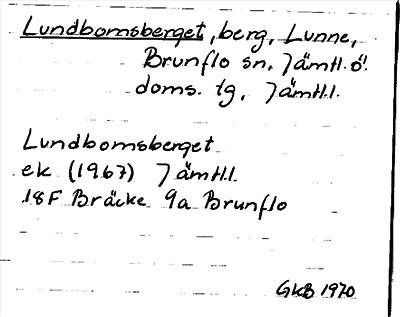 Lundbomsberget, berg, Lunne,
Brunflo sn, Jämtl. ö.
doms. tg, Jämtl.l.
Lundbomsberget
ek (1967) Jämtl.l.
18F Bräcke 9a Brunflo
GKB 1970